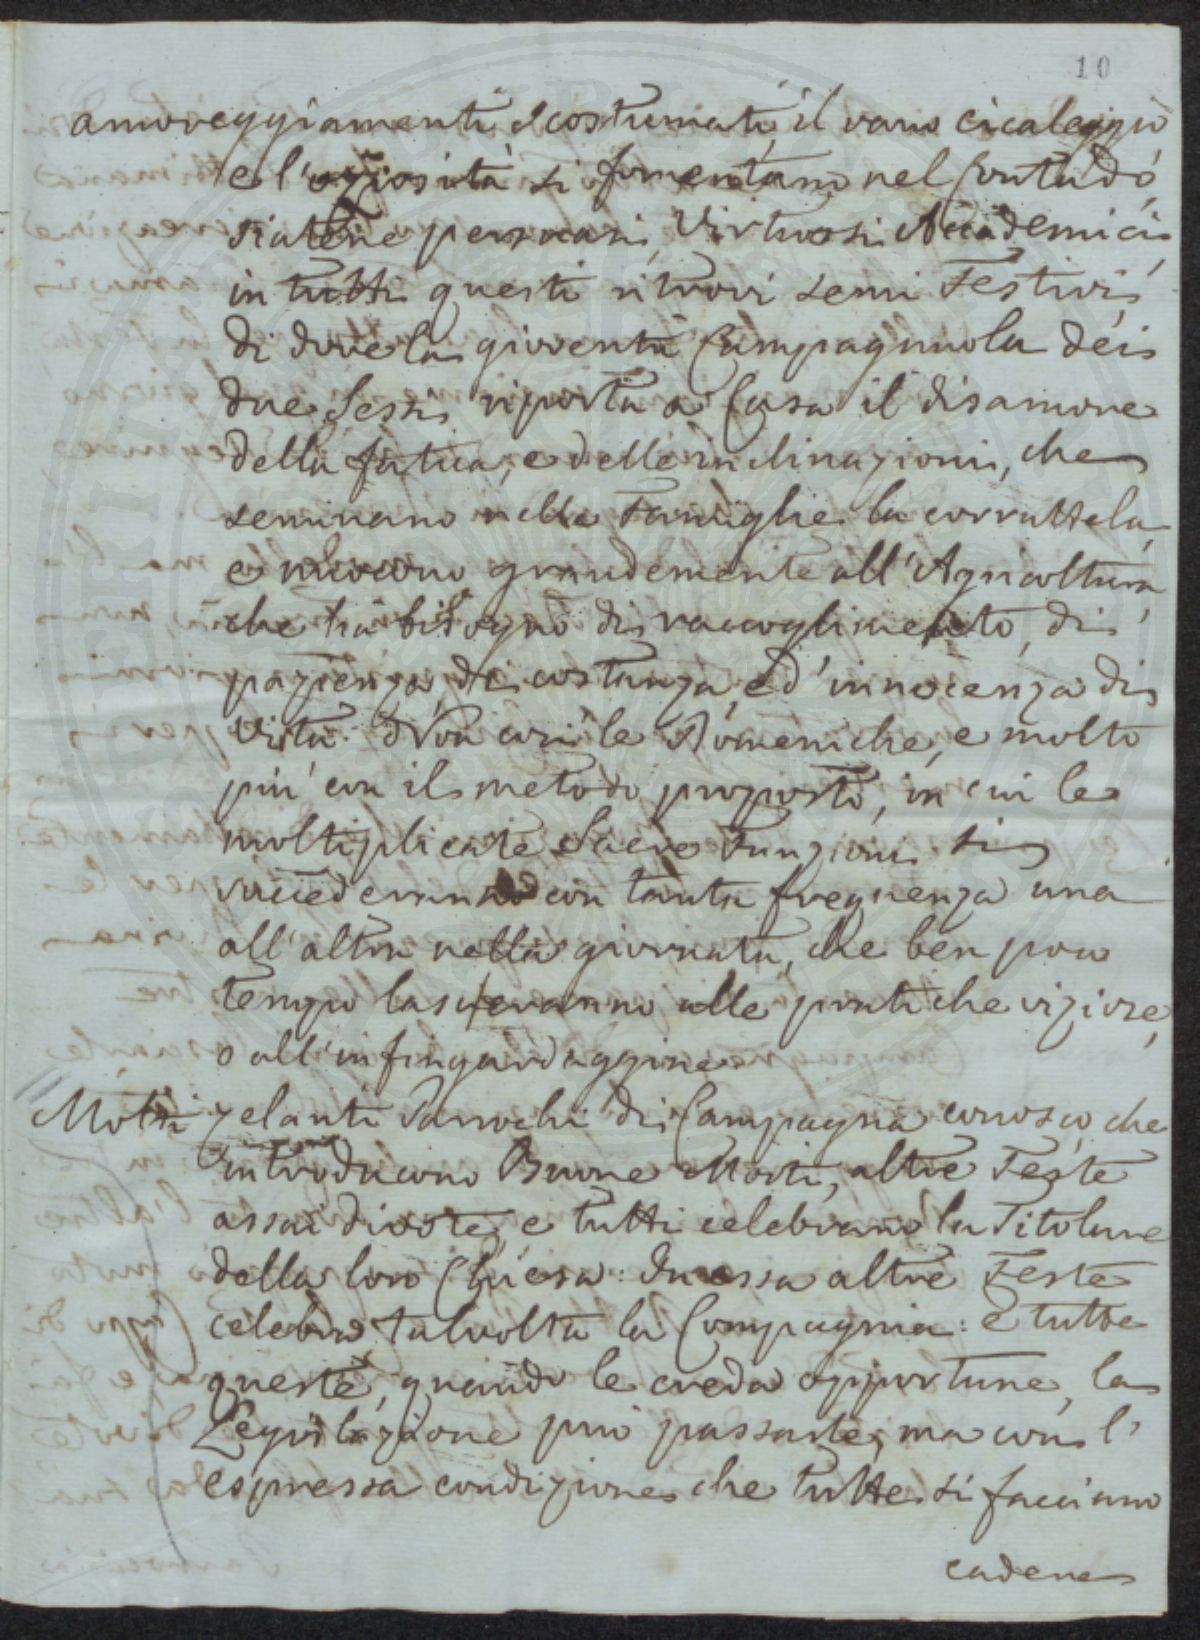 10
amoreggiamenti scostumati, il vano cicaleggio
e l'oziosità si fomentano nel Contado,
siatene persuasi, Virtuosi Accademici,
in tutti questi ritrovi semi Festivi,
di dove la gioventù Campagnuola dei
due Sessi riporta a Casa il disamore
della fatica, e delle inclinazioni, che
seminano nelle Famiglie la corruttela,
e nuocono grandemente all'Agricoltura,
che ha bisogno di raccoglimento, di
pazienza, di costanza, e d'innocenza di
Virtù. Non così le Domeniche, e molto
più con il metodo proposto, in cui le
moltiplicate Sacre Funzioni si
succederanno con tanta frequenza una
all'altra nella giornata, che ben poco
tempo lascieranno alle pratiche viziose,
o all'infingardaggine.
Molti zelanti Parrochi di Campagna conosco che
introducono Buone Morti, altre Feste
assai divote, e tutti celebrano la Titolare
della loro Chiesa: In essa altre Feste
celebra talvolta la Compagnia: e tutte
queste, quando le creda opportune, la
Legislazione può passarle; ma con l'
espressa condizione che tutte si facciano
cadere